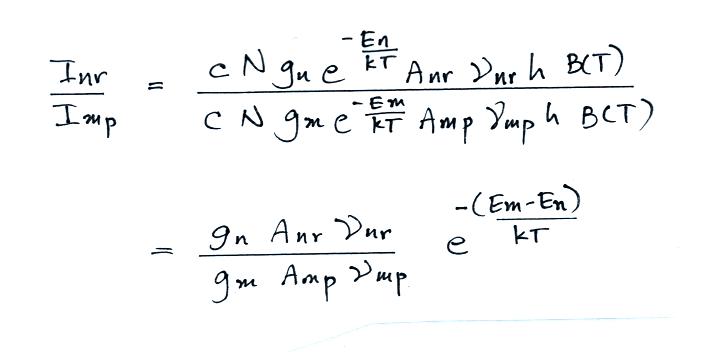 Inr/Imp = (c N gn e^(-En/kT) Anr νnr h B(T)) / (c N gm e^(-Em/kT) Amp νmp h B(T))
= (gn Anr νnr) / (gm Amp νmp) e^(-(Em-En)/kT)